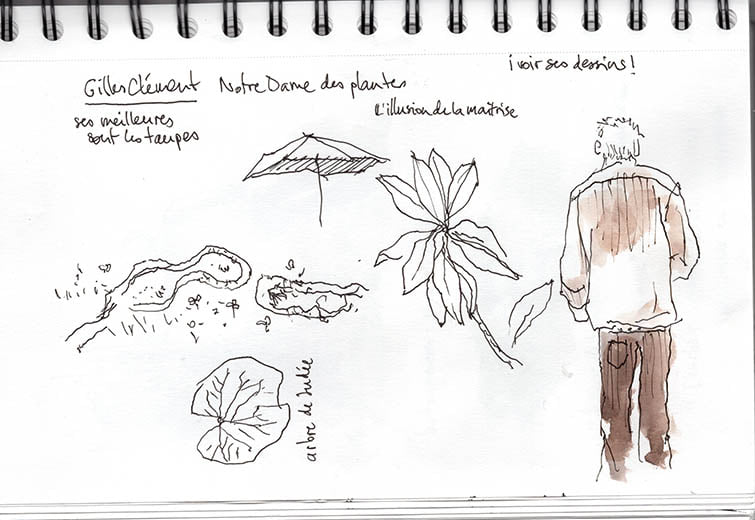 ¡voir ses dessins!
Gilles Clément Notre Dame des plantes
L'illusion de la maîtrise
ses meilleures
sont les taupes
arbre de Judée